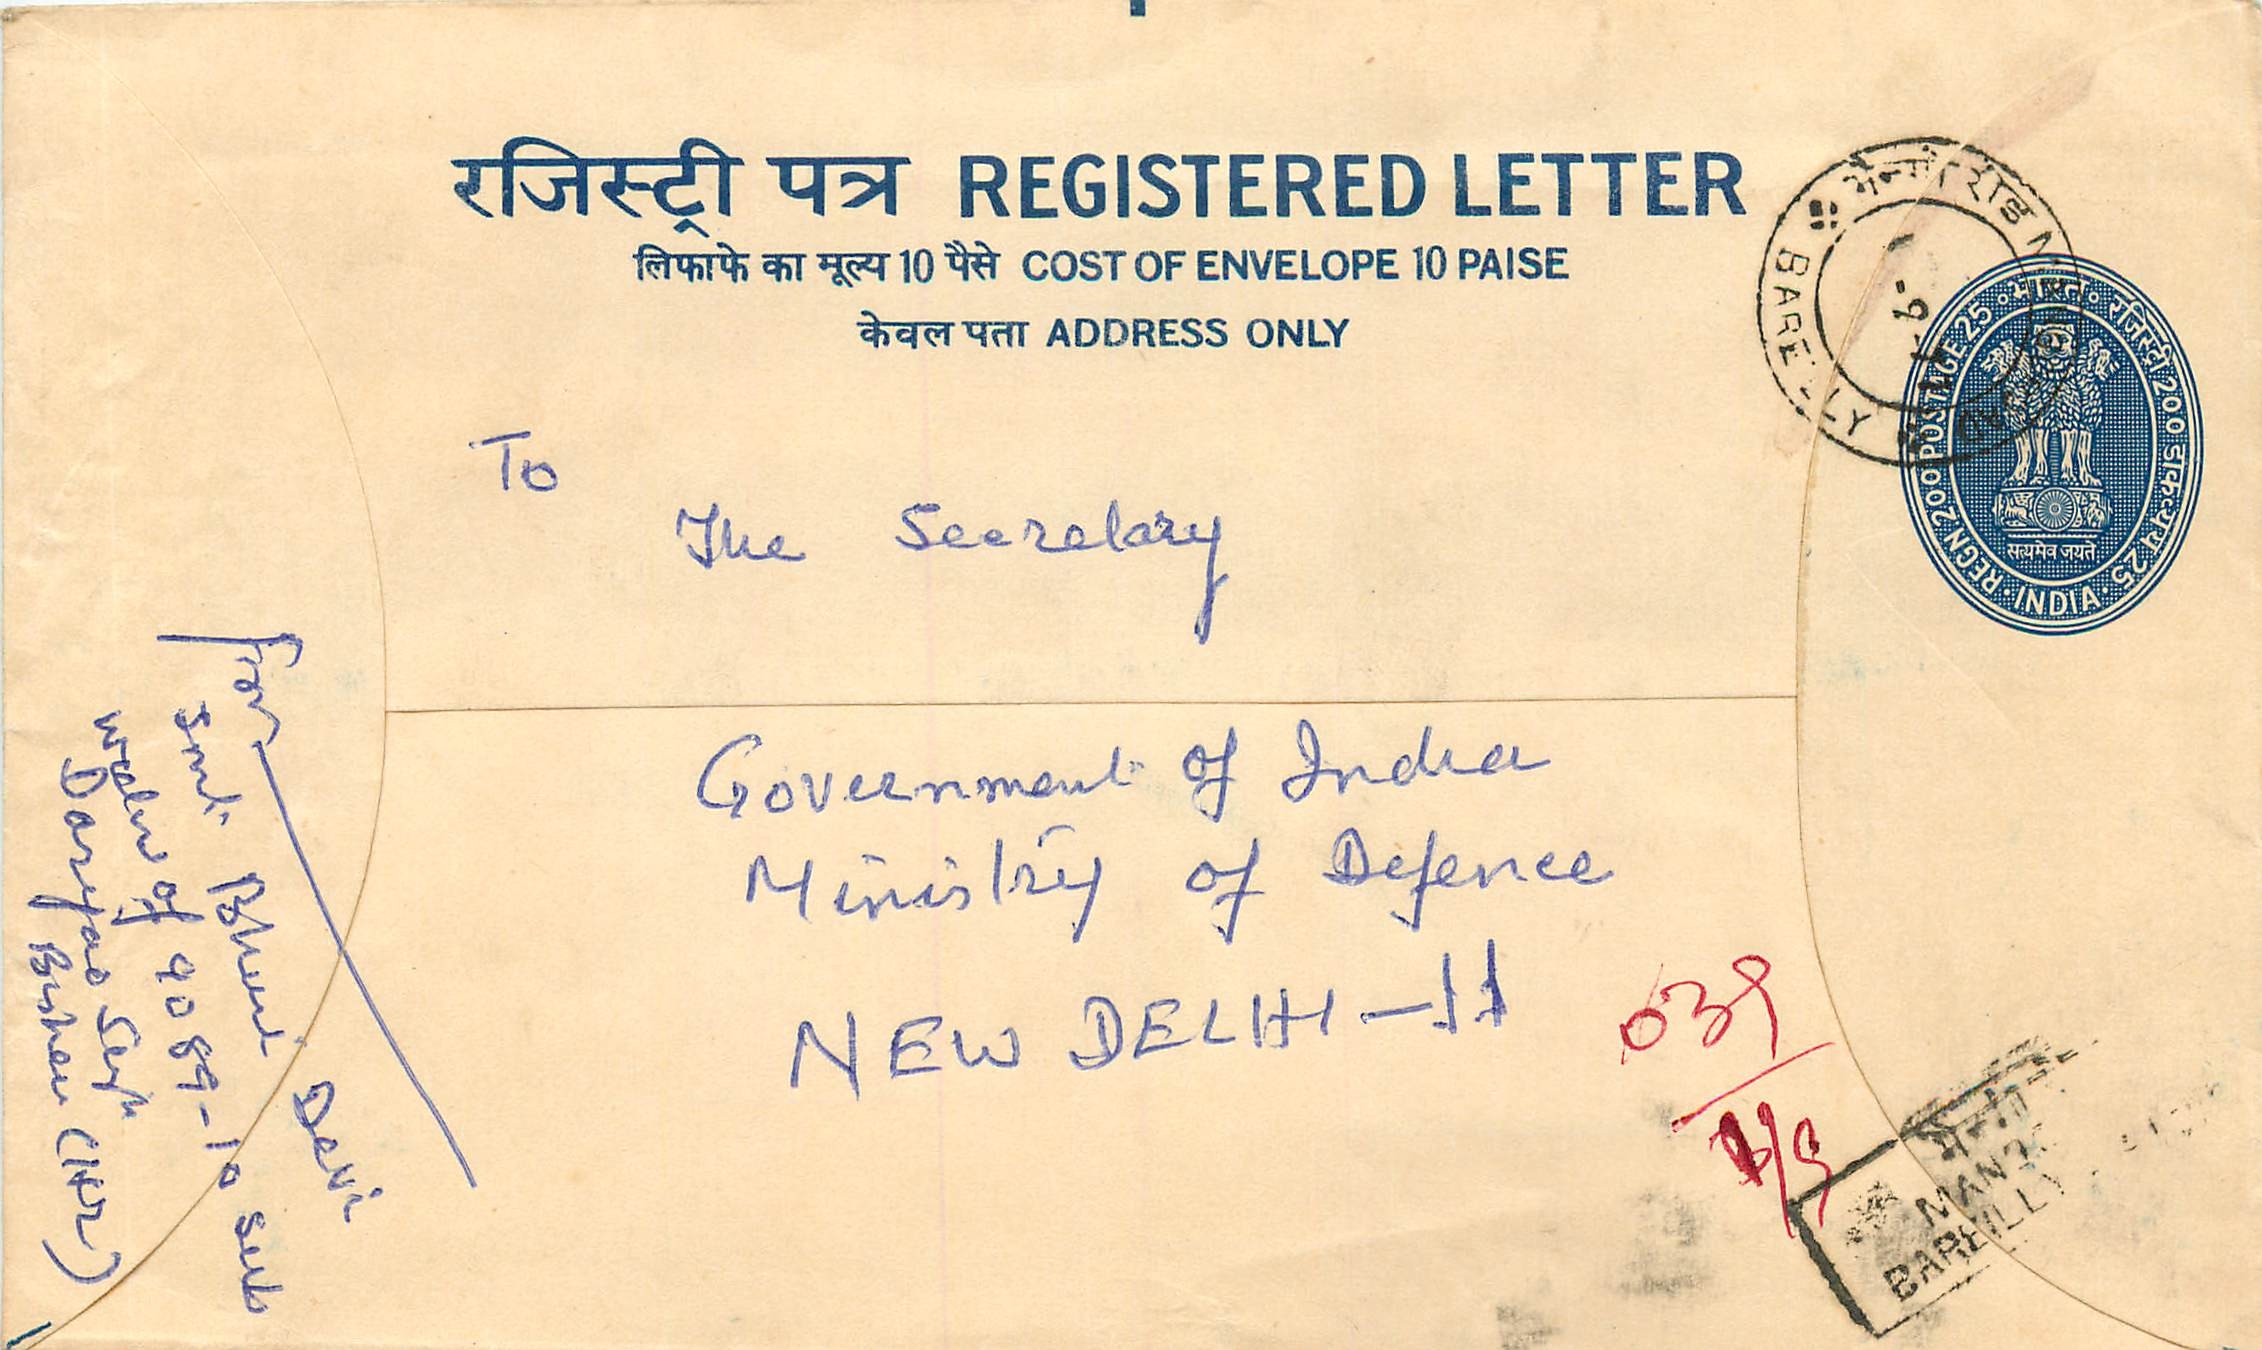 रजिस्ट्री पत्र REGISTERED LETTER
लिफाफे का मूल्य 10 पैसे COST OF ENVELOPE 10 PAISE
केवल पता ADDRESS ONLY
BAREILLY
भारत रजिस्ट्री 200 डाक-व्यय 25
REGN 200 POSTAGE 25
सत्यमेव जयते
INDIA
To
The Secretary
Government of India
Ministry of Defence
NEW DELHI-11
039
Smt. Devi
of 9089-10
BAREILLY